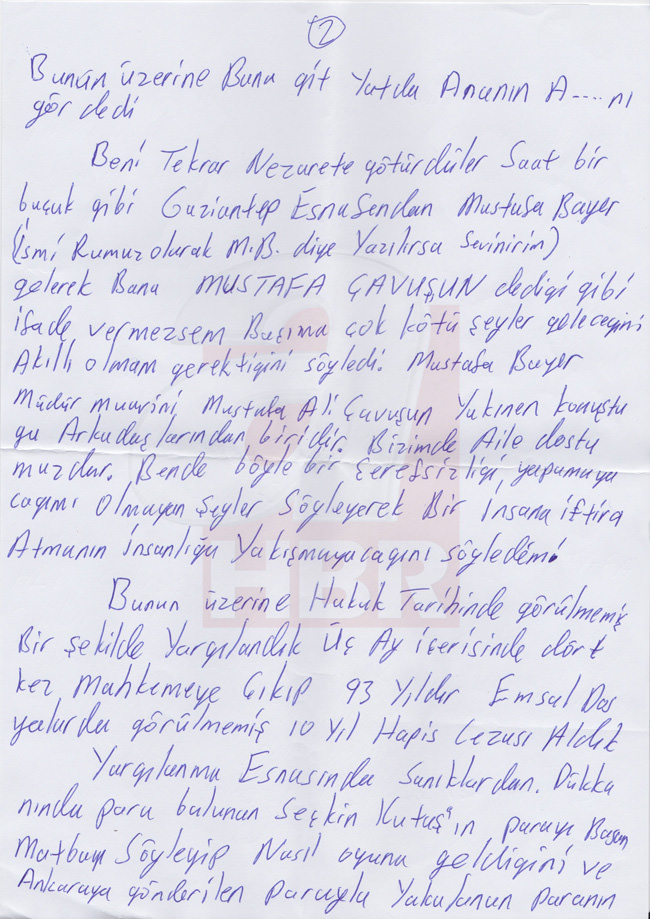 2
Bunun üzerine Bana git Yatda Ananın A....nı
gör dedi
Beni Tekrar Nezarete götürdüler Saat bir
buçuk gibi Gaziantep Esnafından Mustafa Bayer
(İsmi Rumuz olarak M.B. diye Yazılırsa Sevinirim)
gelerek Bana MUSTAFA ÇAVUŞUN dediği gibi
ifade vermezsem Başıma çok kötü şeyler geleceğini
Akıllı olmam gerektiğini söyledi. Mustafa Bayer
Müdür muavini, Mustafa Ali Çavuşun Yakınen konuştu
ğu Arkadaşlarından biridir. Bizimde Aile dostu
muzdur. Bende böyle bir Şerefsizliği, yapamaya
cağımı Olmayan Şeyler Söyleyerek Bir İnsana iftira
Atmanın İnsanlığa Yakışmayacağını söyledim.
Bunun üzerine Hukuk Tarihinde görülmemiş
Bir Şekilde Yargılandık Üç Ay içerisinde dört
kez Mahkemeye Çıkıp 93 Yıldır Emsal Dos
yalarda görülmemiş 10 Yıl Hapis Cezası Aldık
Yargılanma Esnasında Sanıklardan. Dükka
nında para bulunan Seçkin Kutaş'ın parayı Basan
Matbayı Söyleyip Nasıl oyuna geldiğini ve
Ankaraya gönderilen parayla Yakalanan paranın
HBR